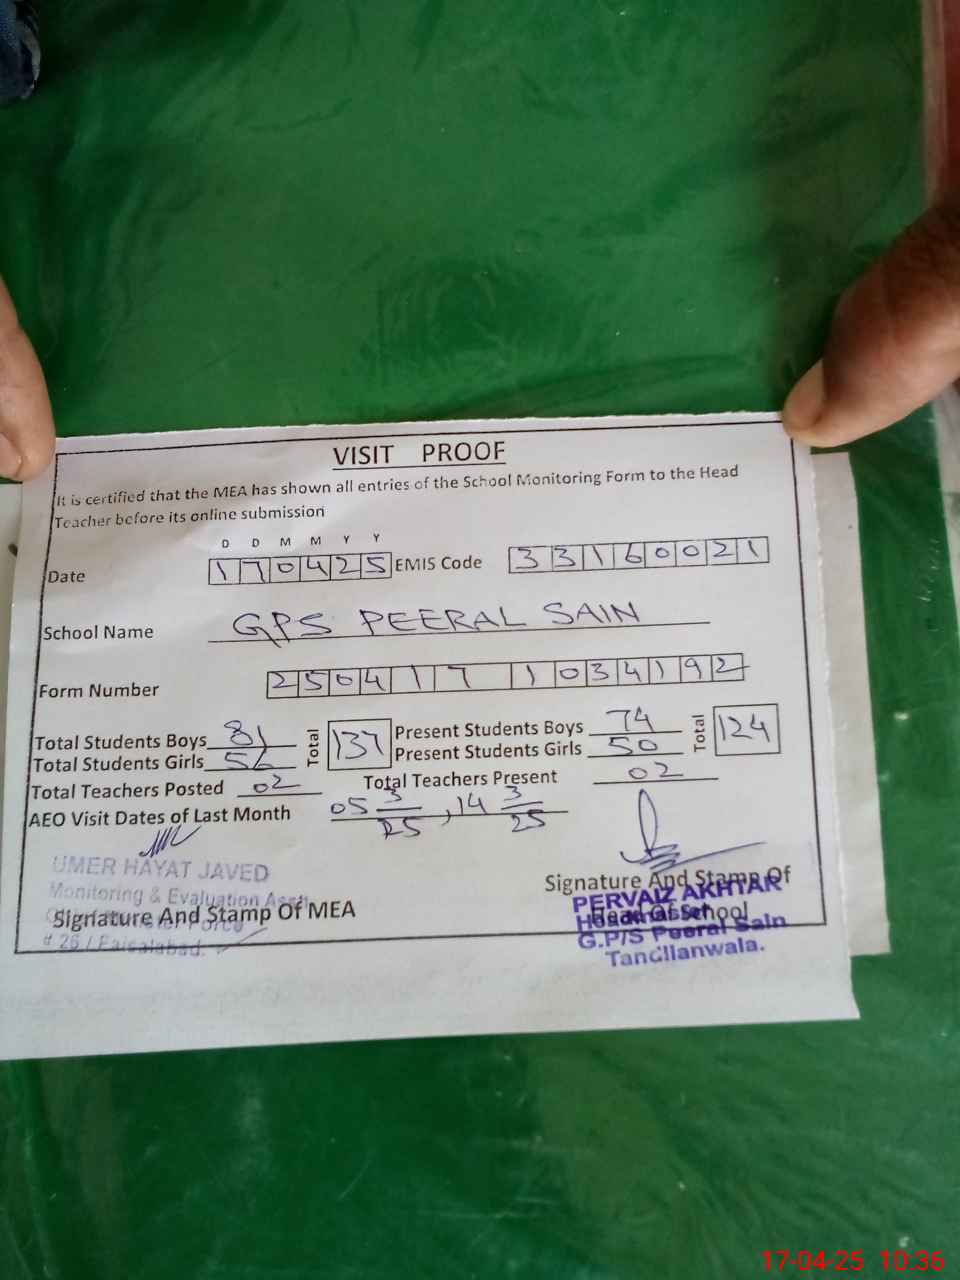 VISIT PROOF
It is certified that the MEA has shown all entries of the School Monitoring Form to the Head
Teacher before its online submission
D D M M Y Y
Date 170425 EMIS Code 33160021
School Name GPS PEERAL SAIN
Form Number 250417 1034192
Total Students Boys 81 Total 137 Present Students Boys 74 Total 124
Total Students Girls 56 Present Students Girls 50
Total Teachers Posted 02 Total Teachers Present 02
AEO Visit Dates of Last Month 05 3/25, 14 3/25
UMER HAYAT JAVED
Monitoring & Evaluation Asstt
Signature And Stamp Of MEA
# 26 / Faisalabad.
Signature And Stamp Of
Head Of School
PERVAIZ AKHTAR
Headmaster
G.P/S Peeral Sain
Tandlianwala.
17-04-25 10:36